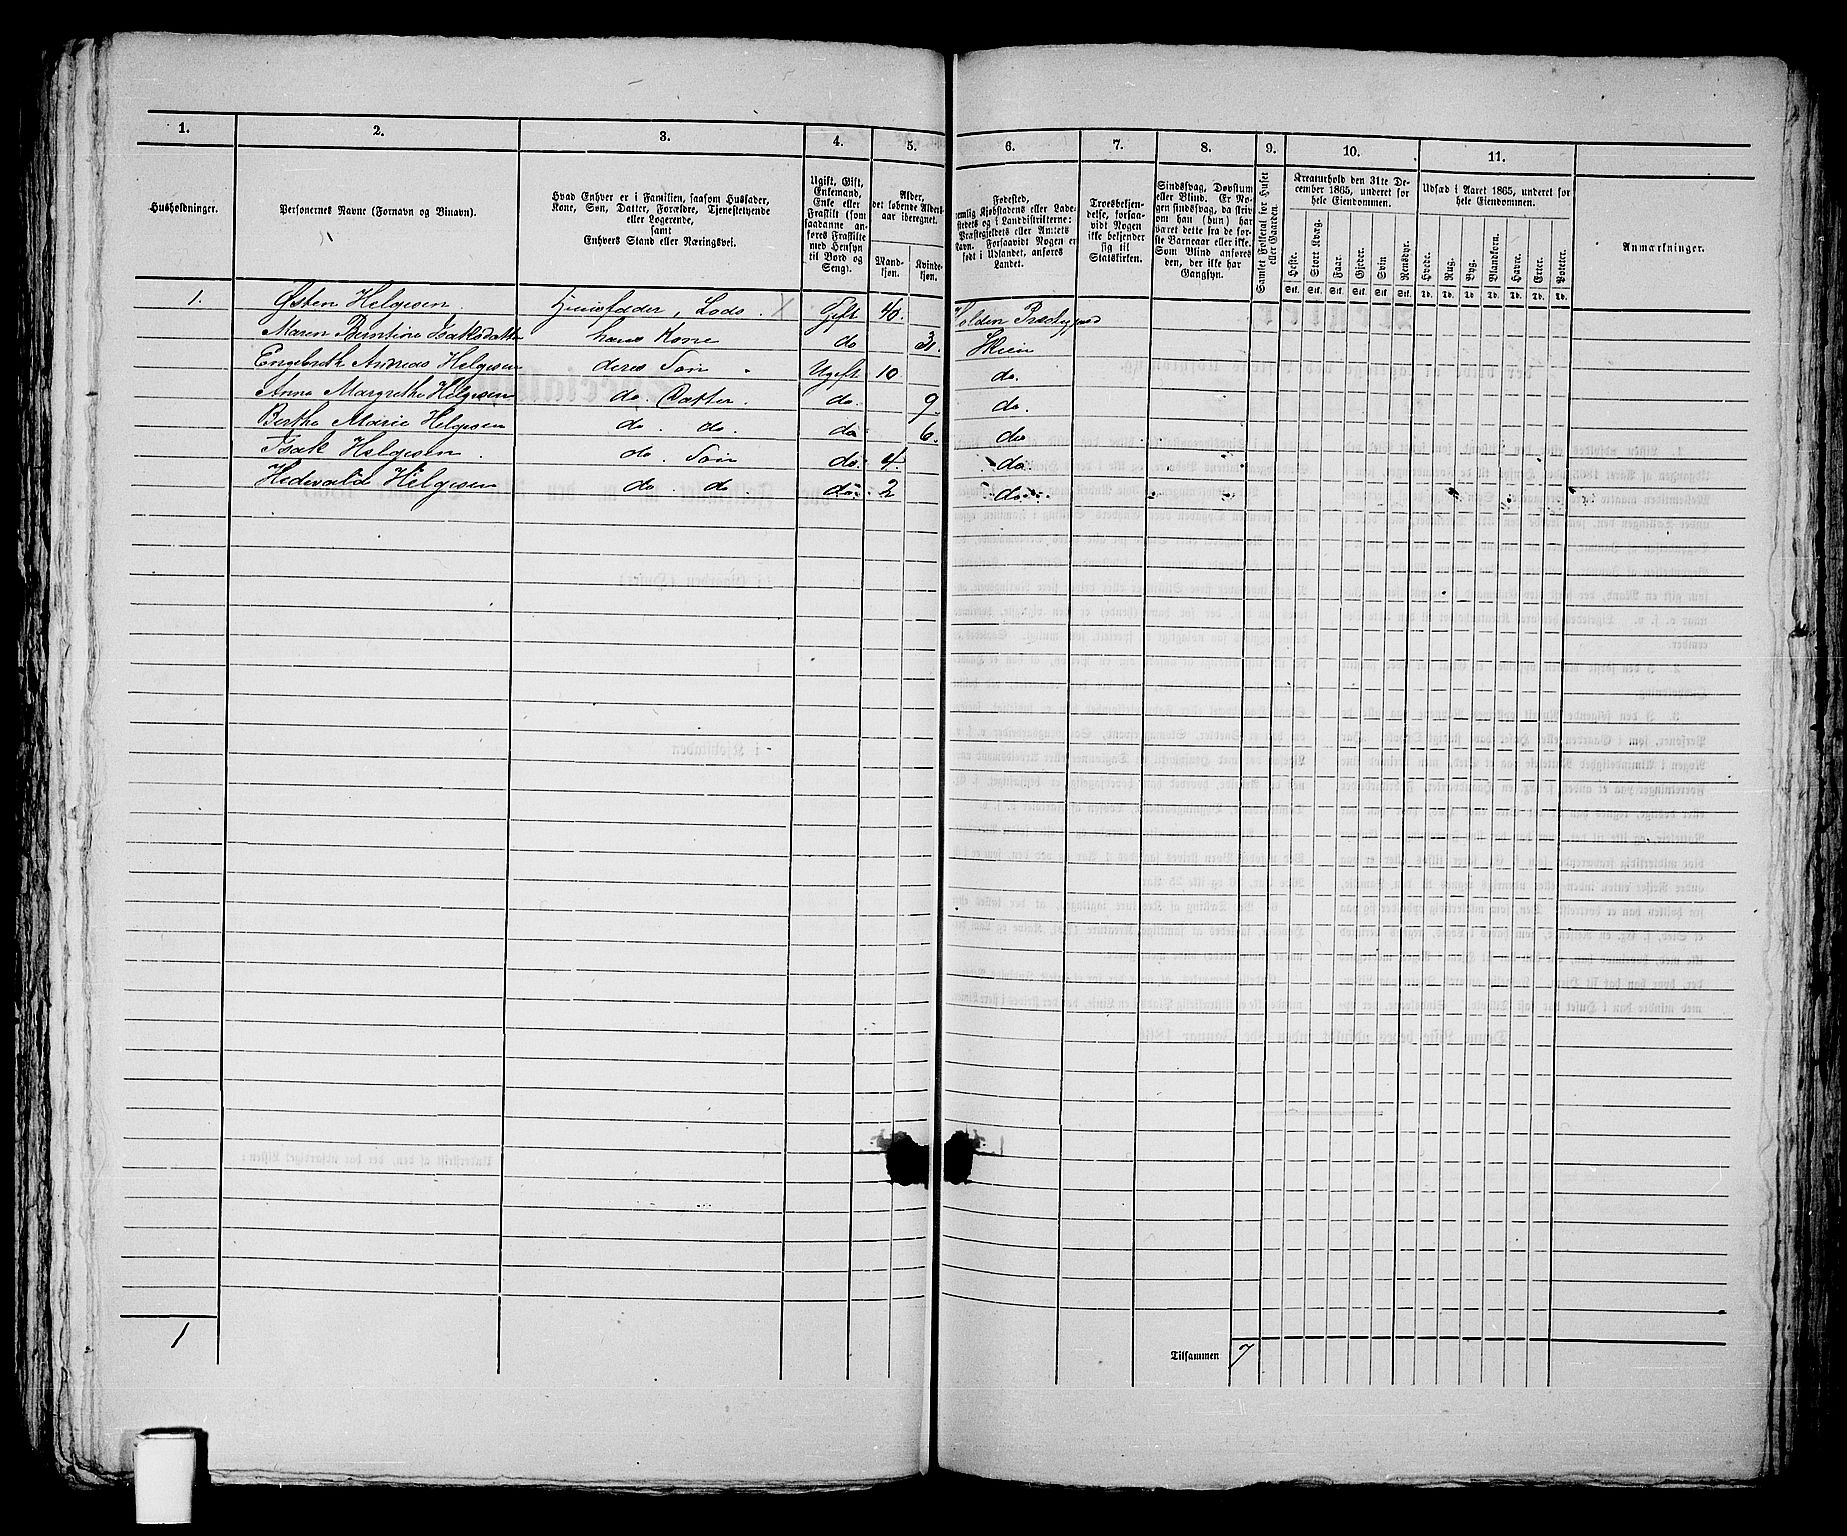 1. 2. 3. 4. 5. 6. 7. 8. 9. 10. 11.
Husholdninger.
Personernes Navne (Fornavn og Binavn).
Hvad Enhver er i Familien, saasom Husfader,
Kone, Søn, Datter, Forældre, Tjenestetyende
eller Logerende,
samt
Enhvers Stand eller Næringsvei.
Ugift, Gift,
Enkemand,
Enke eller
Fraskilt (som
saadanne an-
føres Fraskilte
med Hensyn
til Bord og
Seng).
Alder,
det løbende Alders-
aar iberegnet.
Mand-
kjøn.
Kvinde-
kjøn.
Fødested,
nemlig Kjøbstadens eller Lade-
stedets og i Landdistrikterne:
Præstegjeldets eller Amtets
Navn. Forsaavidt Nogen er
født i Udlandet, anføres
Landet.
Troesbekjen-
delse, forsaa-
vidt Nogen
ikke bekjender
sig til
Statskirken.
Sindssvag, Døvstum
eller Blind. Er No-
gen sindssvag, da skriv
om han (hun) har
været dette fra de før-
ste Barneaar eller ikke.
Som Blind anføres
den, der ikke har
Gangsyn.
Samlet Folketal for Huset
eller Gaarden.
Kreaturhold den 31te De-
cember 1865, underet for
hele Eiendommen.
Heste. Stort Kvæg. Faar. Gjeder. Svin. Rensdyr.
Stk. Stk. Stk. Stk. Stk. Stk.
Udsæd i Aaret 1865, underet for
hele Eiendommen.
Hvede. Rug. Byg. Blandkorn. Havre. Erter. Poteter.
Td. Td. Td. Td. Td. Td. Td.
Anmærkninger.
1. Østen Helgesen Huusfader, Lods. Gift 40. Holden Præstegjæld
Maren Berntine Isaksdatter hans Kone do 31. Skien
Engebreth Andreas Helgesen deres Søn Ugift 10 do.
Anne Margrethe Helgesen do. Datter. do. 9 do.
Berthe Marie Helgesen do. do. do. 6. do
Isak Helgesen. do. Søn do. 4. do
Hedevald Helgesen do. do do. 2 do.
1
Tilsammen 7